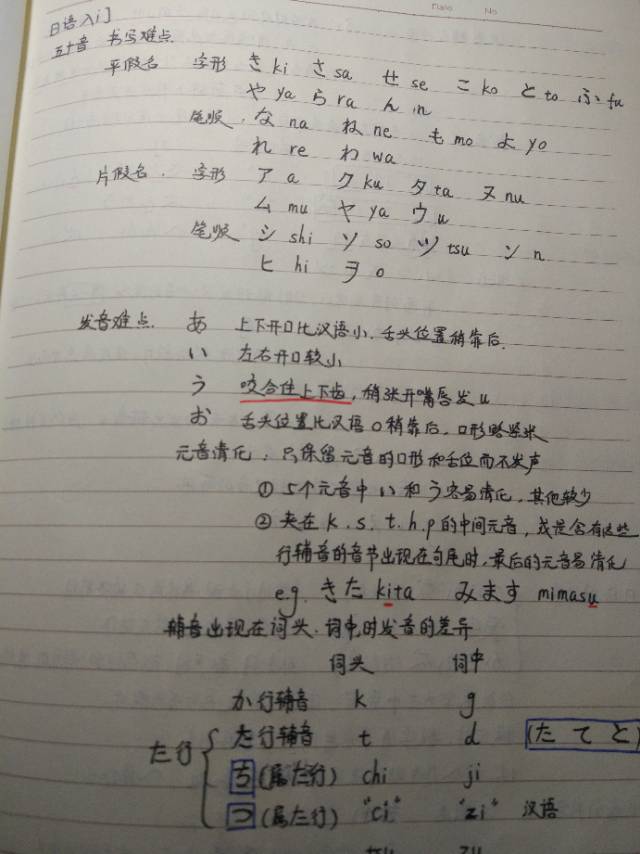 Date No
日语入门
五十音 书写难点
平假名 字形 き ki さ sa せ se こ ko と to ふ fu
や ya ら ra ん n
笔顺. な na ね ne も mo よ yo
れ re わ wa
片假名. 字形 ア a ク ku タ ta ヌ nu
ム mu ヤ ya ウ u
笔顺 シ shi ソ so ツ tsu ン n
ヒ hi ヲ o
发音难点. あ 上下开口比汉语小.舌头位置稍靠后.
い 左右开口较小
う 咬合住上下齿,稍张开嘴唇发u
お 舌头位置比汉语o稍靠后.口形略紧张
元音清化:只保留元音的口形和舌位而不发声
① 5个元音中い和う容易清化,其他较少
② 夹在k.s.t.h.p的中间元音,或是含有这些
行辅音的音节出现在句尾时,最后的元音易清化
e.g. きた kita みます mimasu
辅音出现在词头.词中时发音的差异
词头 词中
か行辅音 k g
た行 { た行辅音 t d (た て と)
ち(属た行) chi ji
つ(属た行) "ci" "zi" 汉语
tsu zu